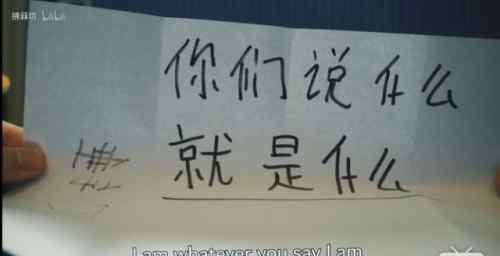 你们说什么
就是什么
I am whatever you say I am